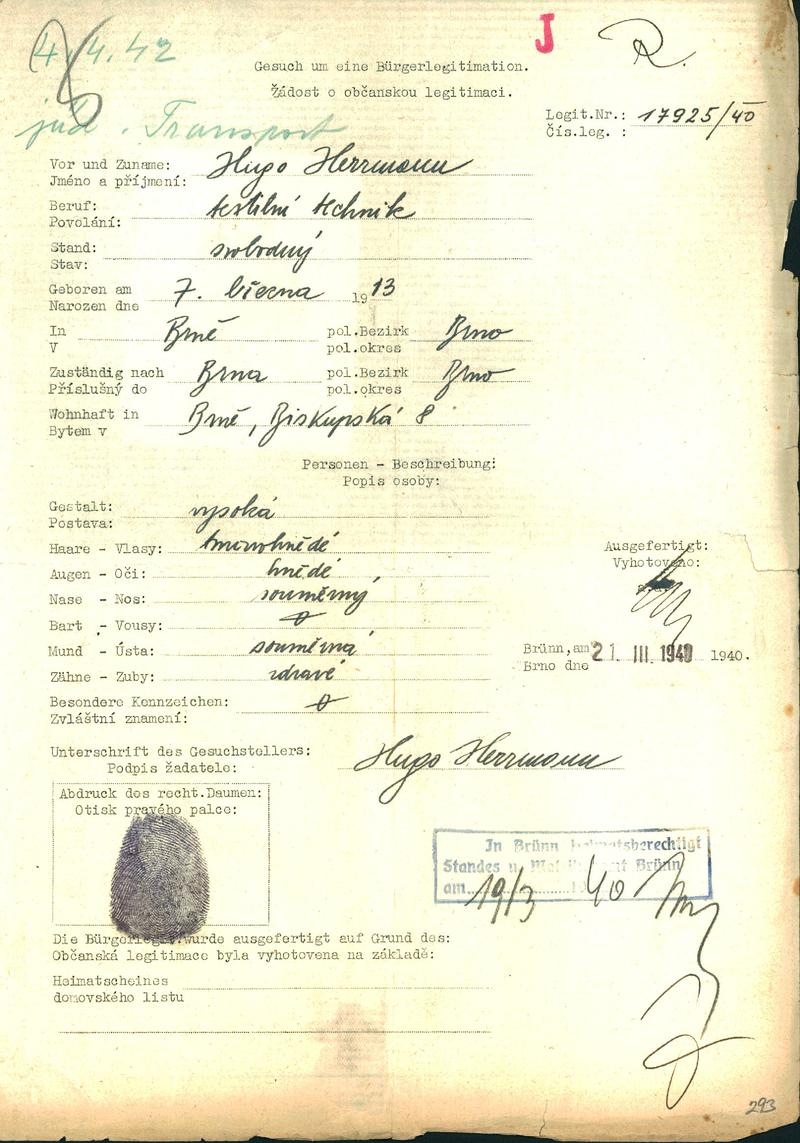 4.4.42
jüd. Transport
J
R.
Gesuch um eine Bürgerlegitimation.
Žádost o občanskou legitimaci.
Legit.Nr.: 17925/40
Čís.leg. :
Vor und Zuname: Hugo Herrmann
Jméno a příjmení:
Beruf: textilní technik
Povolání:
Stand: svobodný
Stav:
Geboren am 7. března 1913
Narozen dne
In Brně pol.Bezirk Brno
V pol.okres
Zuständig nach Brna pol.Bezirk Brno
Příslušný do pol.okres
Wohnhaft in Brně, Biskupská 8
Bytem v
Personen - Beschreibung:
Popis osoby:
Gestalt: vysoká
Postava:
Haare - Vlasy: tmavohnědé
Augen - Oči: hnědé
Nase - Nos: souměrný
Bart - Vousy:
Mund - Ústa: souměrná
Zähne - Zuby: zdravé
Besondere Kennzeichen:
Zvláštní znamení:
Ausgefertigt:
Vyhotoveno:
Brünn, am 21. III. 1940 1940.
Brno dne
Unterschrift des Gesuchstellers: Hugo Herrmann
Podpis žadatele:
Abdruck des recht.Daumen:
Otisk pravého palce:
In Brünn heimatsberechtigt
Standes u. Brünn
am 19/3 40
Die Bürgerlegit.wurde ausgefertigt auf Grund des:
Občanská legitimace byla vyhotovena na základě:
Heimatscheines
domovského listu
293